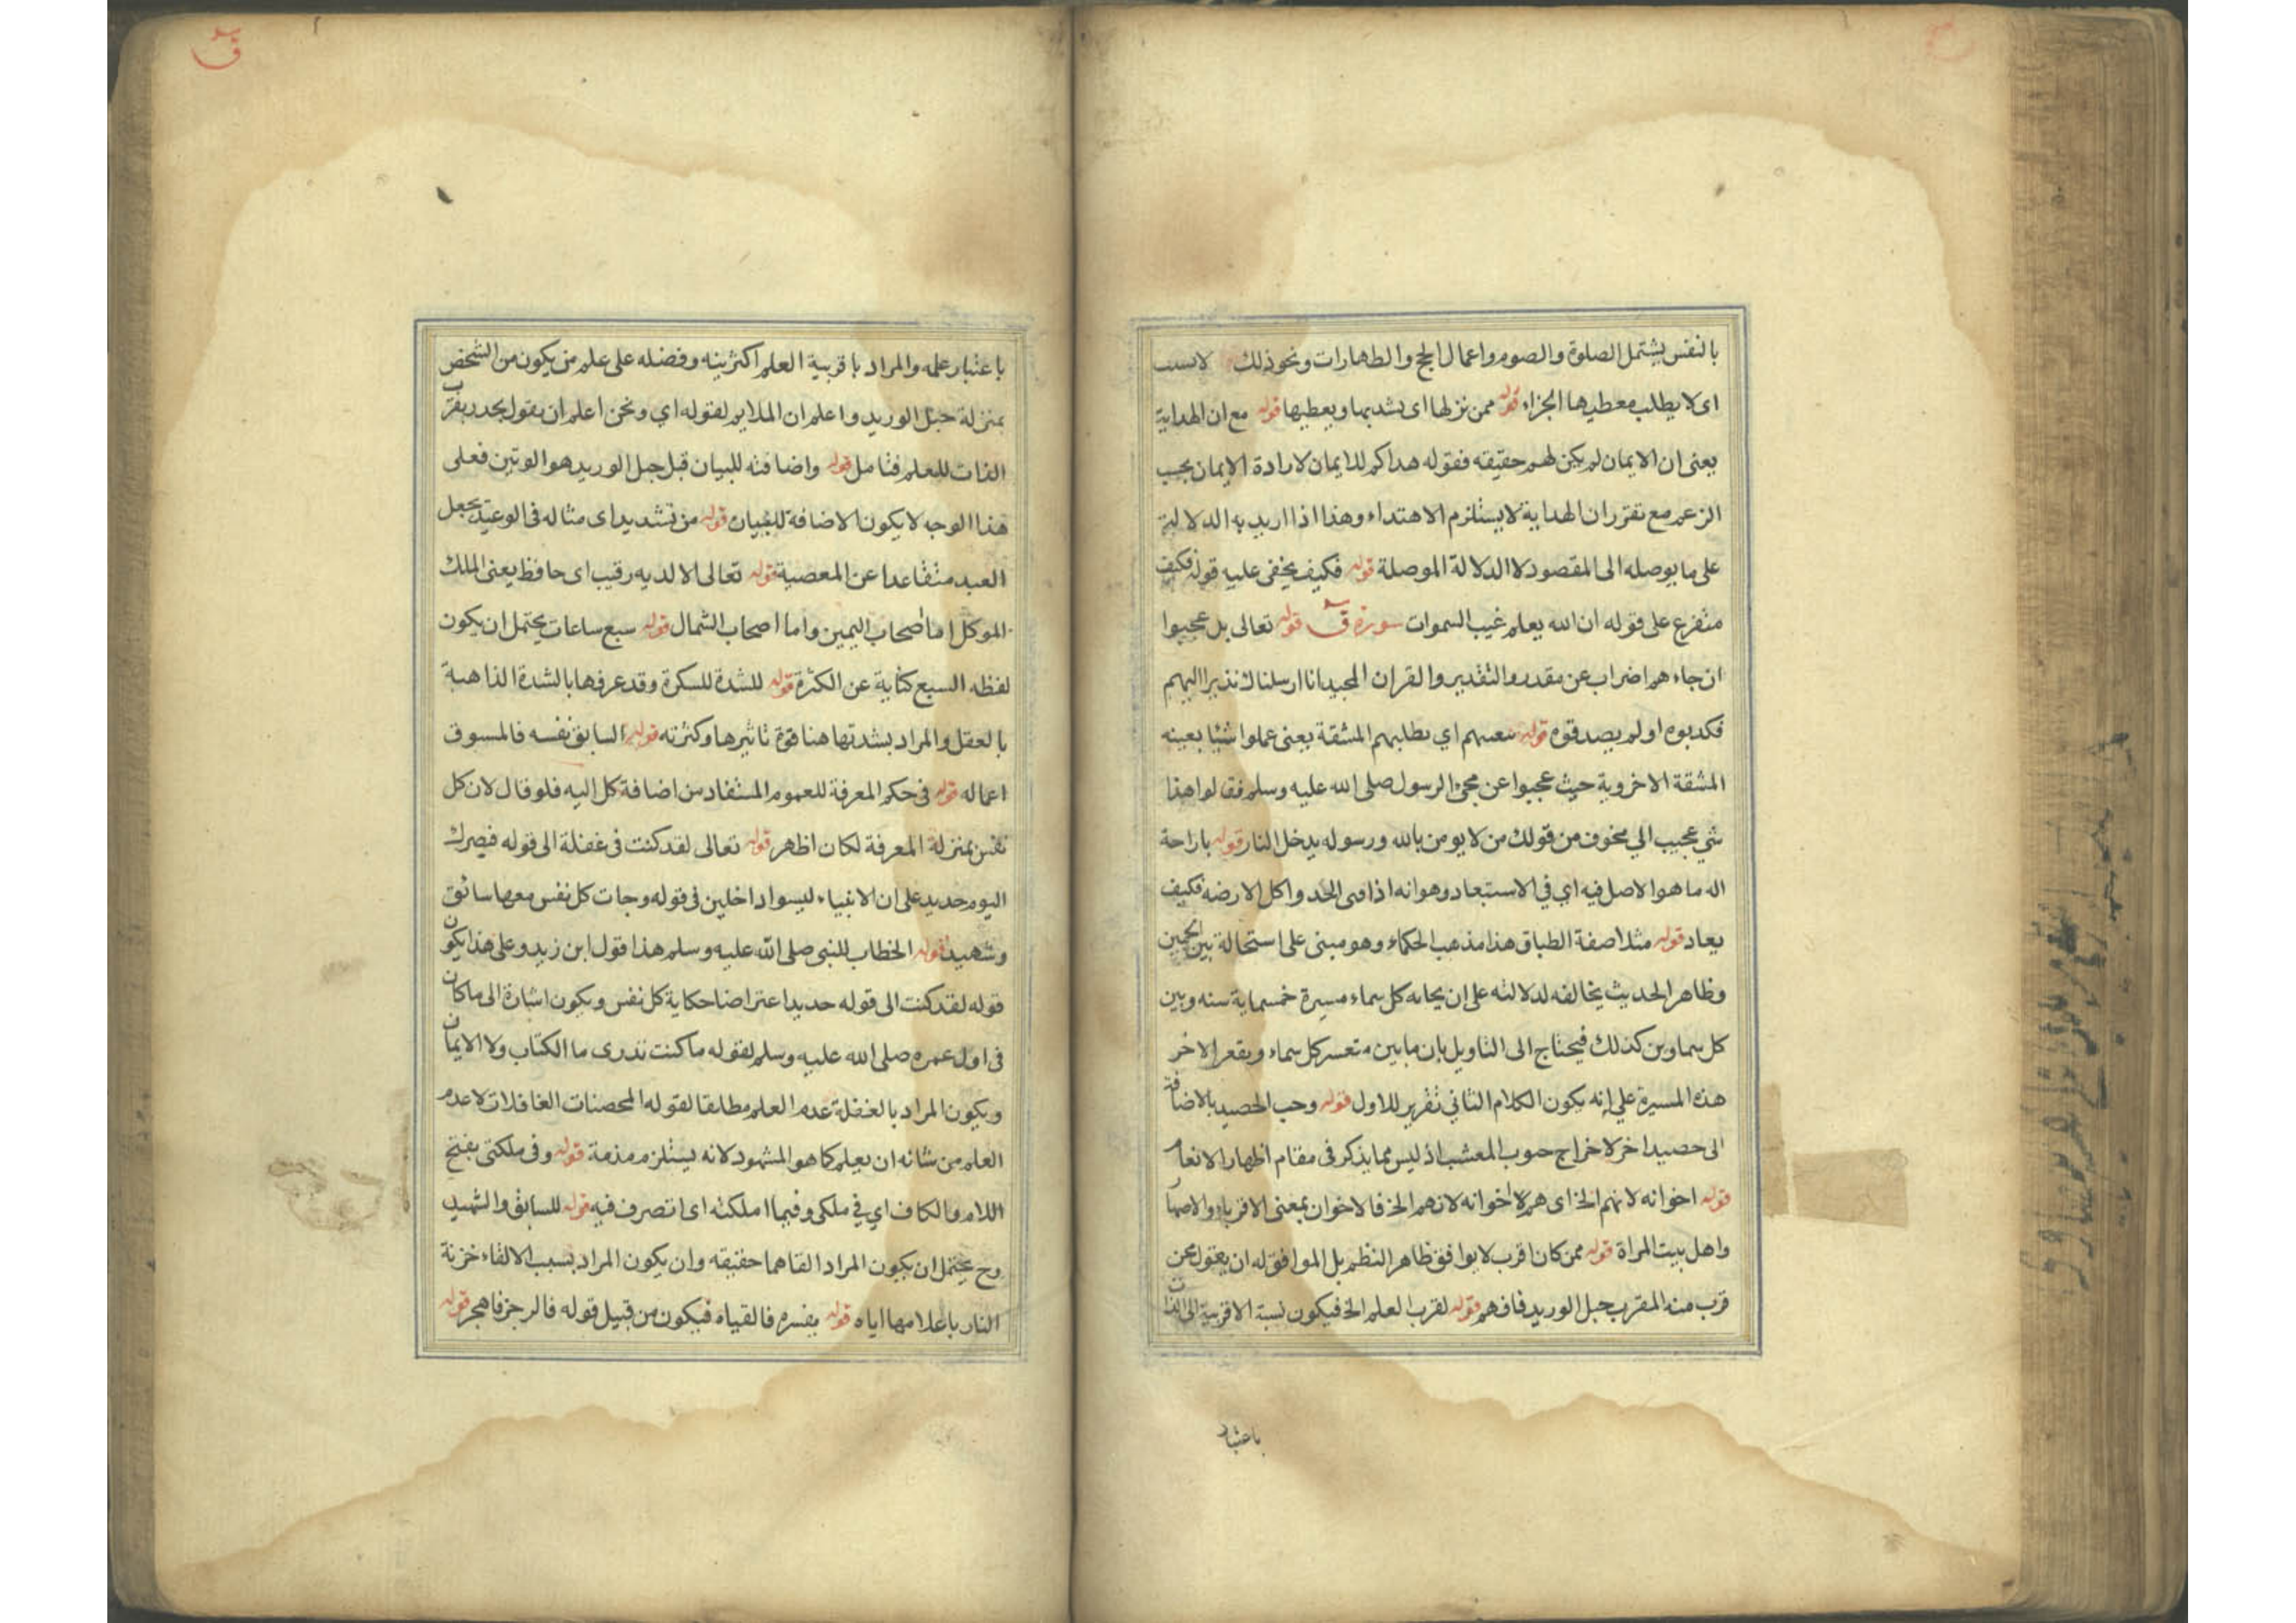 بالنفس يشتمل الصلوة والصوم واعمال الحج والطهارات ونحو ذلك
اى لا يطلب معطيها الجزاء قوله ممن نزلها اى يشد بها ويعطيها قوله مع ان الهداية
يعنى ان الايمان لم يكن لهم حقيقه فقوله هداكم للايمان لارادة الايمان بحسب
الزعم مع تقرر ان الهداية لا يستلزم الاهتداء وهذا اذا اريد به الدلالة
على ما يوصله الى المقصود لا الدلالة الموصلة قوله فكيف يخفى عليه قوله فكيف
متفرع على قوله ان الله يعلم غيب السموات سورة ق قوله تعالى بل عجبوا
ان جاءهم اضراب عن مقدر والتقدير والقران المجيد انا ارسلناك نذيرا اليهم
فكدبوه او لم يصدقوه قوله اي يطلبهم المشقة يعنى عملوا شيئا بعينه
المشقة الاخروية حيث عجبوا عن مجئ الرسول صلى الله عليه وسلم فقالوا هذا
شي عجيب الي مخوف من قولك من لا يومن بالله ورسوله يدخل النار قوله باراحة
اله ما هو الاصل فيه اي في الاستبعاد وهو انه اذا واكل الارضه فكيف
يعاد قوله مثلا صفة الطباق هذا مذهب الحكماء وهو مبنى على استحالة بين
وظاهر الحديث يخالفه لدلالته على ان كل سماء مسيرة خمسماية سنه وبين
كل سماوين كذلك فيحتاج الى التاويل بان ما بين كل سماء ويقعر الاخر
هذه المسيرة على انه يكون الكلام الثاني تقرير للاول قوله وحب الحصيد بالاضافة
الى حصيد اخر لاخراج حبوب المعشب اذ ليس مما يذكر فى مقام اظهار الانعام
قوله اخوانه لانهم الخ اى هم لا اخوانه لانهم الخ فالاخوان بمعنى الاقرباء والاصهار
واهل بيت المراة قوله ممن كان اقرب لا يوافق ظاهر النظم بل الموافق له ان يقول ممن
قرب منه المقرب حبل الوريد فافهم قوله لقرب العلم الخ فيكون نسبة الاقربية الى الذات
باعتبار
ق
باعتبار علمه والمراد باقربية العلم اكثريته وفضله على علم من يكون من الشخص
بمنزلة حبل الوريد واعلم ان الملايم لقوله اي ونحن اعلم ان يقول بقرب
الذات للعلم فتامل قوله واضافته للبيان قبل حبل الوريد هو الوتين فعلى
هذا الوجه لا يكون الاضافة للبيان قوله من تشديد اى مثاله فى الوعيد بجعل
العبد متقاعدا عن المعصية قوله تعالى الا لديه رقيب اى حافظ يعنى الملك
الموكل اما اصحاب اليمين واما اصحاب الشمال قوله سبع ساعات يحتمل ان يكون
لفظه السبع كناية عن الكثرة قوله للشدة للسكرة وقد عرفها بالشدة الذاهبة
بالعقل والمراد بشدتها هنا قوة تاثيرها وكثرته قوله السابق نفسه فالمسوق
اعماله قوله فى حكم المعرفة للعموم المستفاد من اضافة كل اليه فلو قال لان كل
نفس بمنزلة المعرفة لكان اظهر قوله تعالى لقد كنت فى غفلة الى قوله فبصرك
اليوم حديد على ان الانبياء ليسوا داخلين فى قوله وجات كل نفس معها سائق
وشهيد قوله الخطاب للنبى صلى الله عليه وسلم هذا قول ابن زيد وعلى هذا يكون
قوله لقد كنت الى قوله حديد اعتراضا حكاية كل نفس ويكون اشارة الى ما كان
فى اول عمره صلى الله عليه وسلم لقوله ما كنت تدرى ما الكتاب ولا الايمان
ويكون المراد بالغفلة عدم العلم مطلقا لقوله المحصنات الغافلات لا عدم
العلم من شانه ان يعلم كما هو المشهود لانه يستلزم مذمة قوله وفى ملكتى بفتح
اللام والكاف اي في ملكى وفيما املكته اى اتصرف فيه قوله للسائق والشهيد
وح يحتمل ان يكون المراد القاهما حقيقه وان يكون المراد بسبب الالقاء خزنة
النار باعلامها اياه قوله يفسره فالقياه فيكون من قبيل قوله فالرجز فاهجر قوله